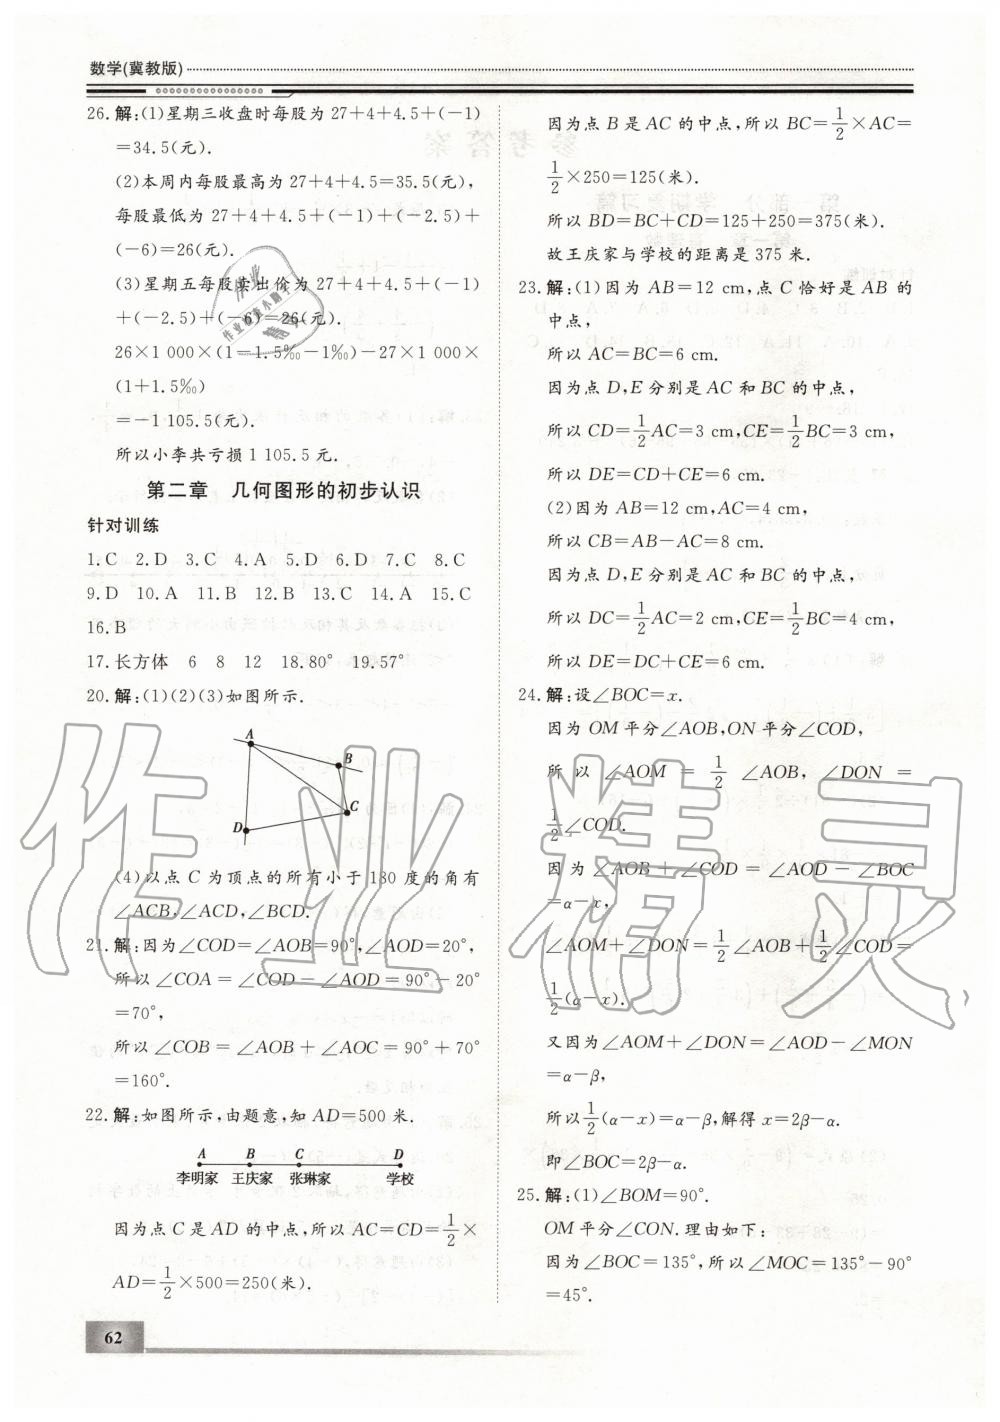 数学(冀教版)
26.解:(1)星期三收盘时每股为 27+4+4.5+(-1)
=34.5(元).
(2)本周内每股最高为 27+4+4.5=35.5(元),
每股最低为 27+4+4.5+(-1)+(-2.5)+
(-6)=26(元).
(3)星期五每股卖出价为 27+4+4.5+(-1)
+(-2.5)+(-6)=26(元).
26×1 000×(1-1.5‰-1‰)-27×1 000×
(1+1.5‰)
=-1 105.5(元).
所以小李共亏损 1 105.5 元.
第二章 几何图形的初步认识
针对训练
1.C 2.D 3.C 4.A 5.D 6.D 7.C 8.C
9.D 10.A 11.B 12.B 13.C 14.A 15.C
16.B
17.长方体 6 8 12 18.80° 19.57°
20.解:(1)(2)(3)如图所示.
A
B
C
D
(4)以点 C 为顶点的所有小于 180 度的角有
∠ACB,∠ACD,∠BCD.
21.解:因为∠COD=∠AOB=90°,∠AOD=20°,
所以∠COA=∠COD-∠AOD=90°-20°
=70°,
所以∠COB=∠AOB+∠AOC=90°+70°
=160°.
22.解:如图所示,由题意,知 AD=500 米.
A B C D
李明家 王庆家 张琳家 学校
因为点 C 是 AD 的中点,所以 AC=CD=1/2×
AD=1/2×500=250(米).
62
因为点 B 是 AC 的中点,所以 BC=1/2×AC=
1/2×250=125(米).
所以 BD=BC+CD=125+250=375(米).
故王庆家与学校的距离是 375 米.
23.解:(1)因为 AB=12 cm,点 C 恰好是 AB 的
中点,
所以 AC=BC=6 cm.
因为点 D,E 分别是 AC 和 BC 的中点,
所以 CD=1/2AC=3 cm,CE=1/2BC=3 cm,
所以 DE=CD+CE=6 cm.
(2)因为 AB=12 cm,AC=4 cm,
所以 CB=AB-AC=8 cm.
因为点 D,E 分别是 AC 和 BC 的中点,
所以 DC=1/2AC=2 cm,CE=1/2BC=4 cm,
所以 DE=DC+CE=6 cm.
24.解:设∠BOC=x.
因为 OM 平分∠AOB,ON 平分∠COD,
所以∠AOM=1/2∠AOB,∠DON=
1/2∠COD.
因为∠AOB+∠COD=∠AOD-∠BOC
=α-x,
∠AOM+∠DON=1/2∠AOB+1/2∠COD=
1/2(α-x).
又因为∠AOM+∠DON=∠AOD-∠MON
=α-β,
所以1/2(α-x)=α-β,解得 x=2β-α.
即∠BOC=2β-α.
25.解:(1)∠BOM=90°.
OM 平分∠CON.理由如下:
因为∠BOC=135°,所以∠MOC=135°-90°
=45°.
作业精灵